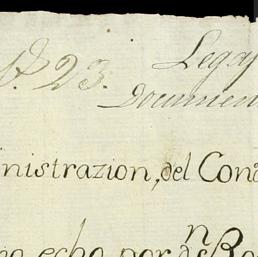 Nº 23. Legaj
Documen
nistrazion, del Con
echo por dn Ro